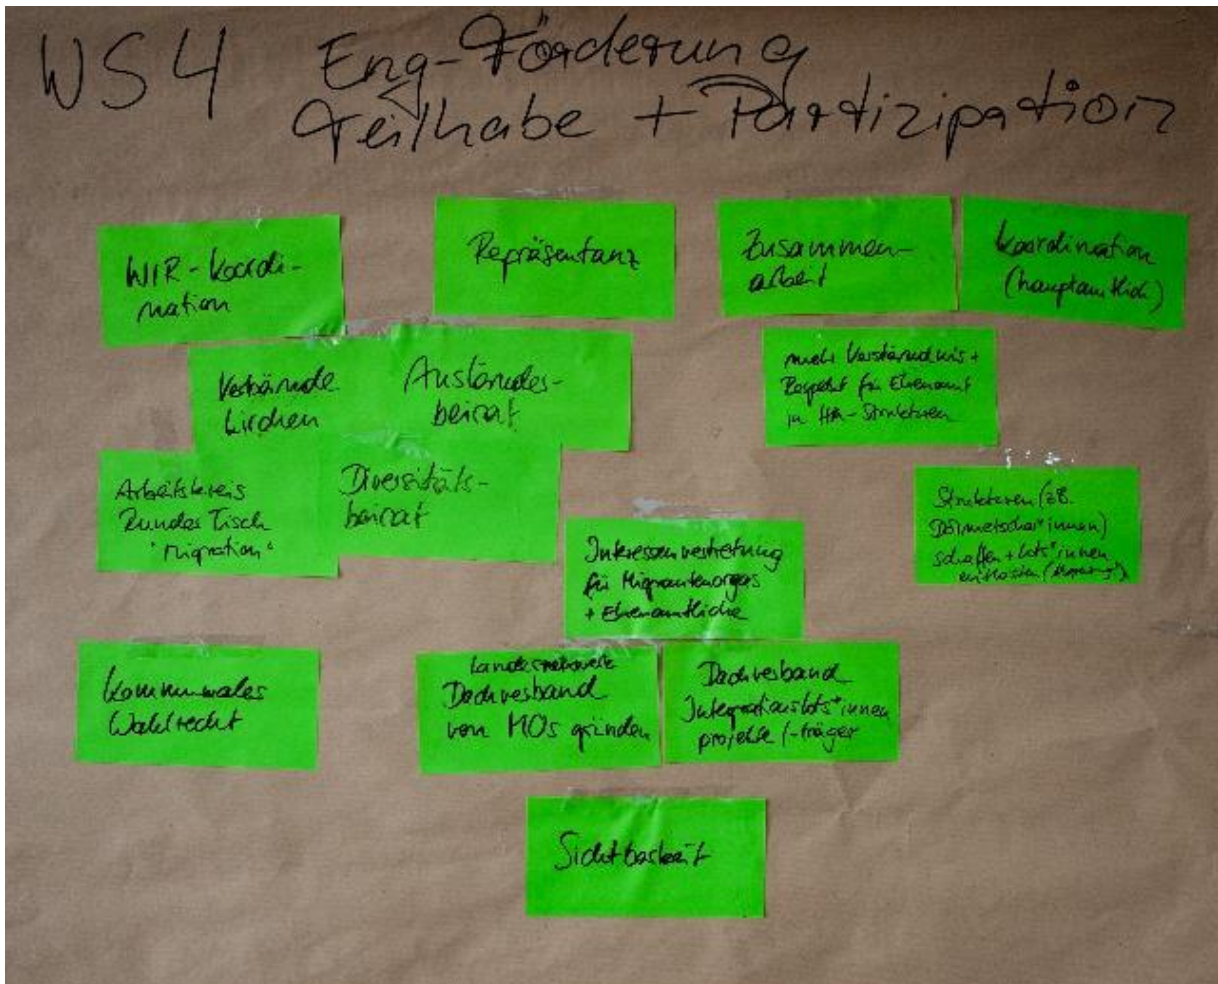 WS4 Eng-Förderung
Teilhabe + Partizipation
WIR-Koordi-
nation
Repräsentanz
Zusammen-
arbeit
Koordination
(hauptamtlich)
Verbände
Kirchen
Ausländer-
beirat
mehr Verständnis +
Respekt für Ehrenamt
in HA-Strukturen
Arbeitskreis
Runder Tisch
"Migration"
Diversitäts-
beirat
Interessenvertretung
für Migrantenorgas
+ Ehrenamtliche
Strukturen (zB.
Dolmetscher*innen)
schaffen + Lots*innen
entlasten
Kommunales
Wahlrecht
Landesnetzwerk
Dachverband
von MOs gründen
Dachverband
Integrationslots*innen
projekte /-träger
Sichtbarkeit